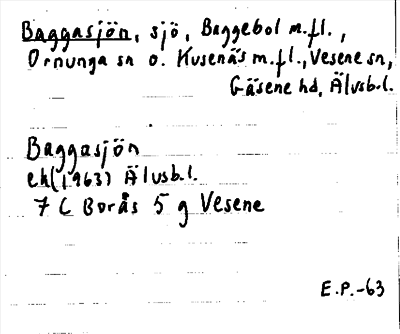 Baggasjön, sjö, Baggebol m.fl.,
Ornunga sn o. Kusenäs m.fl., Vesene sn,
Gäsene hd, Älvsb.l.
Baggasjön
ek (1963) Älvsb.l.
7 C Borås 5 g Vesene
E.P.-63